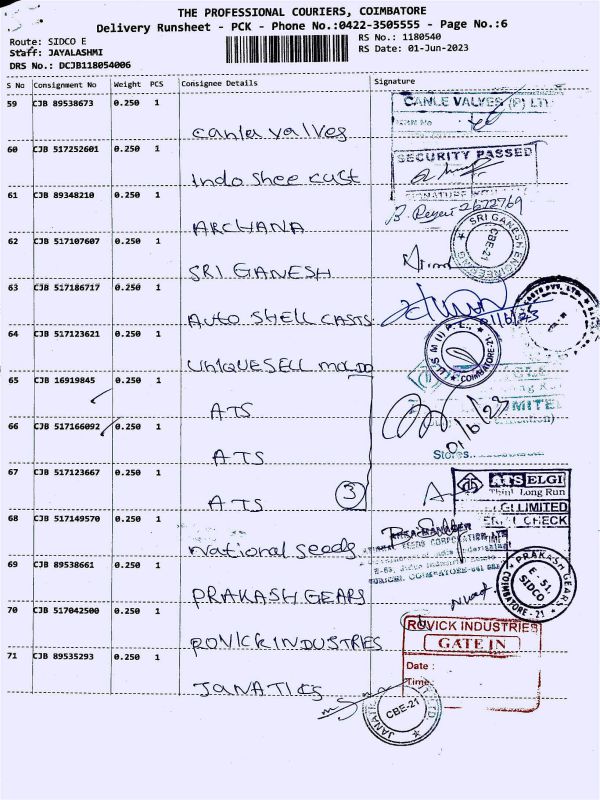 THE PROFESSIONAL COURIERS, COIMBATORE
Delivery Runsheet - PCK - Phone No.:0422-3505555 - Page No.:6
Route: SIDCO E
RS No.: 1180540
Staff: JAYALASHMI
RS Date: 01-Jun-2023
DRS No.: DCJB118054006
S No Consignment No Weight PCS Consignee Details Signature
59 CJB 89538673 0.250 1
CANLE VALVES (P) LT
Canle valves
60 CJB 517252601 0.250 1
SECURITY PASSED
Indo Shee cast
61 CJB 89348210 0.250 1
2672769
ARCHANA
62 CJB 517107607 0.250 1
SRI GANESH ENGINEERING
CBE-21
SRI GANESH
63 CJB 517186717 0.250 1
Auto SHELL CASTS
01/6/23
64 CJB 517123621 0.250 1
COIMBATORE-21
UNIQUESELL MOLDD
65 CJB 16919845 0.250 1
ATS
01/6/23
66 CJB 517166092 0.250 1
Stores
ATS
67 CJB 517123667 0.250 1
ATS ELGI
Think Long Run
GI LIMITED
CHECK
ATS
3
68 CJB 517149570 0.250 1
National seeds
69 CJB 89538661 0.250 1
PRAKASH GEARS
E-51, SIDCO
COIMBATORE-21
PRAKASH GEARS
70 CJB 517042500 0.250 1
ROVICK INDUSTRIES
GATE IN
ROVICK INDUSTRIES
Date :
71 CJB 89535293 0.250 1
Time:
JANATICS
CBE-21